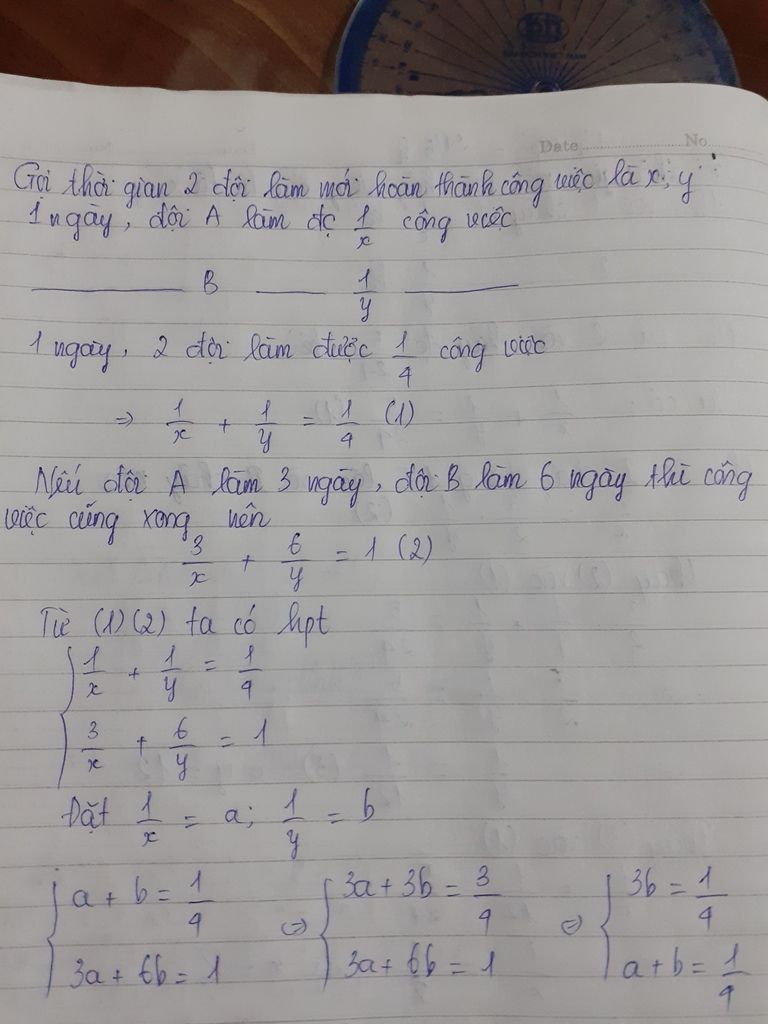 Date No
Gọi thời gian 2 đội làm mới hoàn thành công việc là x; y
1 ngày, đội A làm đc 1/x công việc
———— B —— 1/y ————
1 ngày, 2 đội làm được 1/4 công việc
=> 1/x + 1/y = 1/4 (1)
Nếu đội A làm 3 ngày, đội B làm 6 ngày thì công
việc cũng xong nên
3/x + 6/y = 1 (2)
Từ (1) (2) ta có hpt
{ 1/x + 1/y = 1/4
3/x + 6/y = 1
Đặt 1/x = a; 1/y = b
{ a + b = 1/4 <=> { 3a + 3b = 3/4 <=> { 3b = 1/4
3a + 6b = 1 3a + 6b = 1 a + b = 1/4